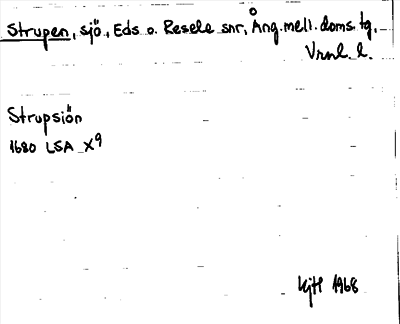 Strupen, sjö, Eds o. Resele snr, Ång. mell. doms. tg,
Vrnl l.
Strupsiön
1680 LSA X9
KjH 1968